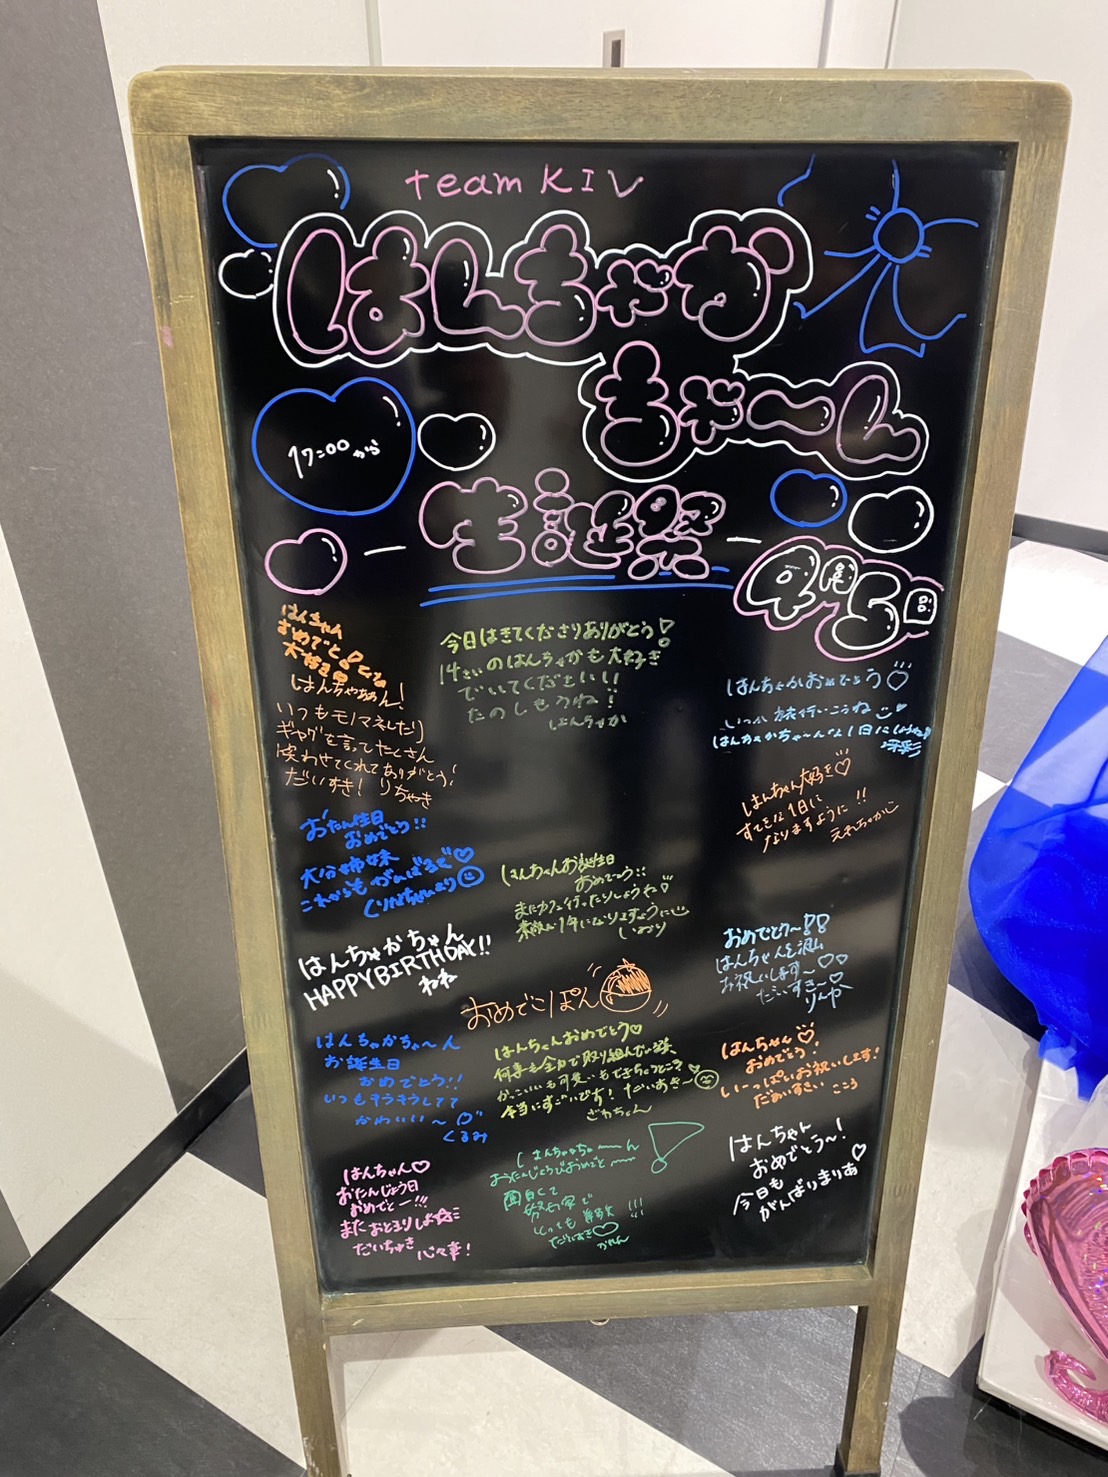 team KIV
はんちゃか
ちゃーん
17:00から
生誕祭
4月5日
はんちゃん
おめでと!
大好き
はんちゃああん!
いつもモノマネしたり
ギャグを言ってたくさん
笑わせてくれてありがとう!
だいすき! りちゃき
おたん生日
おめでとう!!
大谷姉妹
これからもがんばるぞ♡
はんちゃかちゃん
HAPPY BIRTHDAY!!
ねね
はんちゃかちゃ〜ん
お誕生日
おめでとう!!
いつもキラキラしてて
かわいい〜
くるみ
はんちゃん♡
おたんじょう日
おめでとー!!!
またおとまりしよ☆
だいちゅき 心々華!
今日はきてくださりありがとう!
14さいのはんちゃかも大好き
でいてください!
たのしもうね!
はんちゃか
はんちゃんお誕生日
おめでとう!!
またカフェ行ったりしようね!
素敵な1年になりますように
いおり
おめでこぽん
はんちゃんおめでとう♡
何事も全力で取り組んでいる姿、
かっこいいも可愛いもできちゃうところ
本当にすごいです! だいすき〜
ざわちゃん
はんちゃかちゃーーん
おたんじょうびおめでとーー!
面白くて
努力家で
とっても
だいすき♡
はんちゃかおめでとう♡
いつか旅行いこうね
はんちゃかちゃ〜んな1日にしようね
はんちゃん大好き♡
すてきな1日に
なりますように!!
えれちゃか
おめでとう〜!!
はんちゃんを沢山
お祝いします〜♡♡
だいすき〜♡
はんちゃん♡
おめでとう!
いーっぱいお祝いします!
だあいすきい こころ
はんちゃん
おめでとう〜!
今日も
がんばりまりあ♡